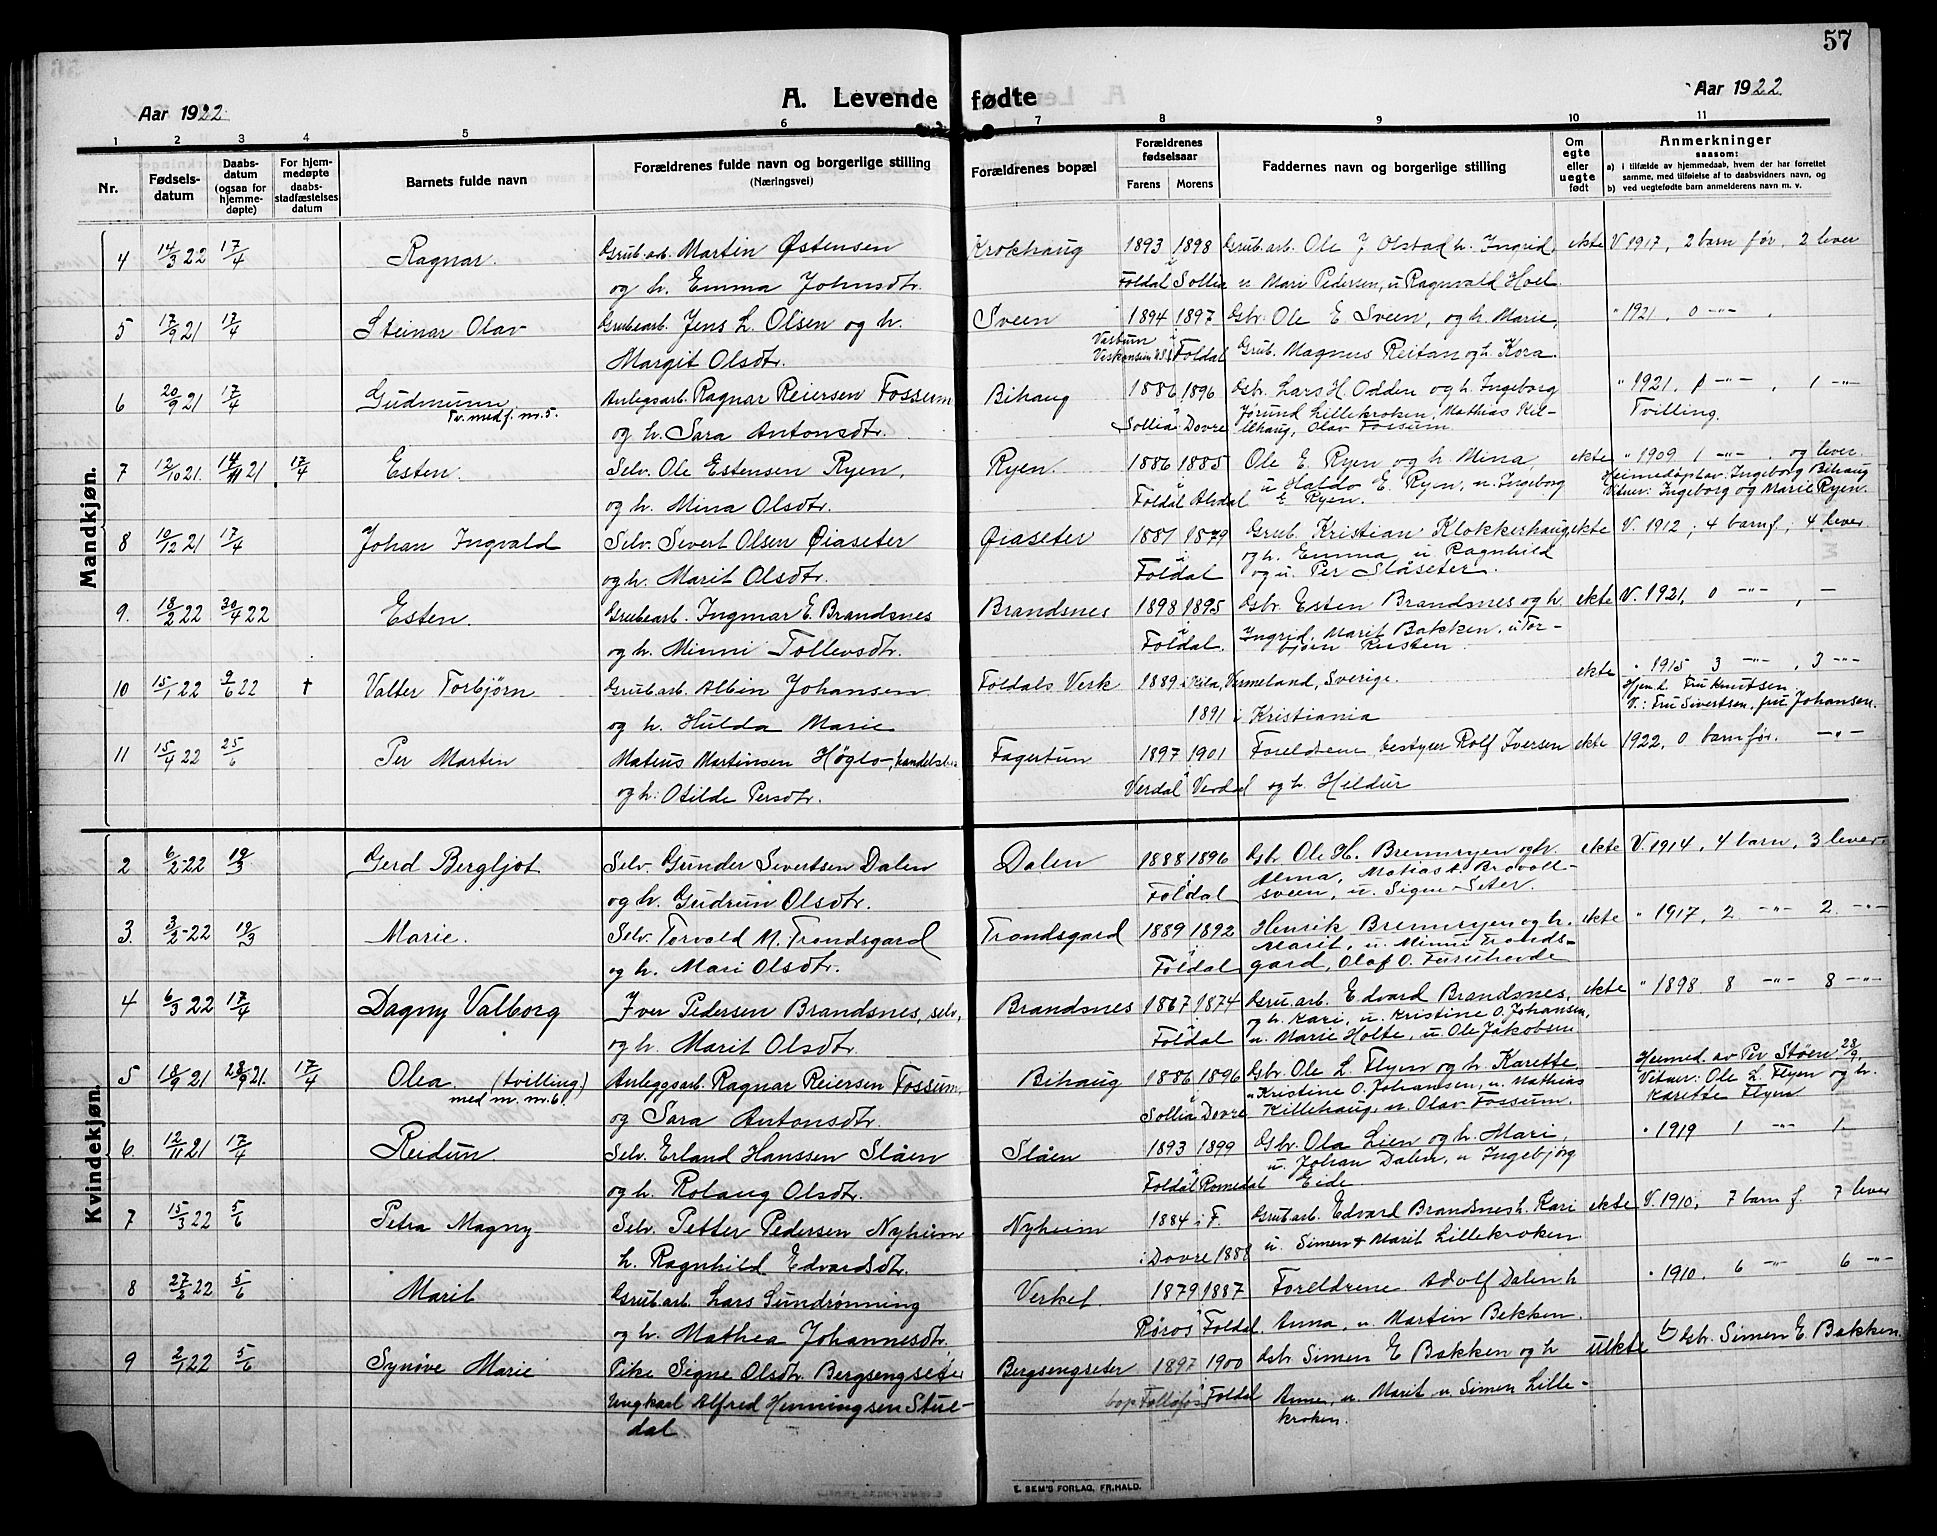 57
Aar 1922
A. Levende fødte
Aar 1922
1 2 3 4 5 6 7 8 9 10 11
Nr.
Fødsels-
datum
Daabs-
datum
(ogsaa for
hjemme-
døpte)
For hjem-
medøpte
daabs-
stadfæstelses
datum
Barnets fulde navn
Forældrenes fulde navn og borgerlige stilling
(Næringsvei)
Forældrenes bopæl
Forældrenes
fødselsaar
Farens Morens
Faddernes navn og borgerlige stilling
Om
egte
eller
uegte
født
Anmerkninger
saasom:
a) i tilfælde av hjemmedaab, hvem der har forrettet
samme, med tilføielse af to daabsvidners navn, og
b) ved uegtefødte barn anmelderens navn m. v.
Mandkjøn.
4 14/3 22 17/4 Ragnar. Grub.arb. Martin Østensen Krokhaug 1893 1898 Grub.arb. Ole J Olstad h. Ingrid, ekte V 1917, 2 barn før, 2 lever
og h. Emma Johnsdtr. Foldal Sollia u Mari Pedersen, u Ragnvald Hoel
5 17/9 21 17/4 Steinar Olav Grubearb. Jens L. Olsen og h. Sveen 1894 1897 Gbr. Ole E Sveen, og h. Marie, " 1921, 0 -"-
Margit Olsdtr. Foldal Grub. Magnus Reitan og h. Kora.
6 20/9 21 17/4 Gudmunn Anlegsarb. Ragnar Reiersen Fossum Bihaug 1886 1896 Gbr. Lars H. Odden og h. Ingeborg " 1921, 1 -"-, 1 -"-
Tv. med j. nr. 5. og h. Sara Antonsdtr. Sollia Dovre Jørund Lillekroken, Mathias Kil-
lihaug, Olav Fossum Tvilling.
7 12/10 21. 14/11 21 17/4 Esten. Selv. Ole Estensen Ryen, Ryen. 1886 1885 Ole E. Ryen og h. Mina, ekte " 1909 1 -"-. og lever.
og h. Mina Olsdtr. Foldal Alvdal u Haldo E. Ryen, u. Ingeborg
E Ryen. Heimedøpt av: Ingeborg Bihaug
Vitner: Ingeborg og Marie Ryen.
8 10/12 21 17/4 Johan Ingvald Selv. Sivert Olsen Øiaseter Øiaseter 1881 1879 Grub. Kristian Klokkerhaug ekte V. 1912; 4 barn f; 4 lever
og h. Marit Olsdtr. Foldal og h. Emma u Ragnhild
og u. Per Slåseter.
9. 18/2 22 30/4 22 Esten. Grubearb. Ingmar E. Brandsnes Brandsnes 1898 1895 Gbr. Esten Brandsnes og h ekte V. 1921, 0 -"-, -
og h. Minni Tollevsdtr. Foldal. Ingrid, Marit Bakken, u Tor-
bjørn Rusten.
10 15/1 22 9/6 22 † Valter Torbjørn Grub.arb. Albin Johansen Foldals Verk 1889 i Kila, Vermeland, Sverige. ekte " 1915 3 -"-, 3 -"-
og h. Hulda Marie 1891 i Kristiania Hjem.d. Fru Knutsen
V.: Fru Sivertsen, fru Johansen.
11 15/4 22 25/6 Per Martin Mateus Martinsen Høglo, handelsbe Fagertun 1897 1901 Foreldrene, bestyrer Rolf Iversen ekte 1922, 0 barn før. -"-
og h: Otilde Persdtr. Verdal Verdal og h. Heldur
Kvindekjøn.
2 6/2-22 19/3 Gerd Bergljot Selv. Gunder Sivertsen Dalen Dalen 1888 1896 Gbr Ole H. Brennryen og h. ekte V. 1914, 4 barn, 3 lever.
og h. Gudrun Olsdtr. Foldal Alma, Matias Bravoll-
sveen, u. Signe Seter.
3. 3/2-22 19/3 Marie. Selv. Torvald M. Trondsgard Trondsgard 1889 1892 Henrik Brennryen og h. ekte " 1917, 2 -"- 2 -"-
og h. Mari Olsdtr. Foldal Marit, u. Minni Tronds-
gard, Olaf O. Furuhovde
4 6/3 22 17/4 Dagny Valborg Iver Pedersen Brandsnes, selv, Brandsnes 1867 1874 Gru.arb. Edvard Brandsnes, ekte " 1898 8 -"- 8 -"-
og h. Marit Olsdtr. Foldal og h. Kari, u. Kristine O. Johansen,
u. Marie Holte, u. Ole Jakobsen
5 18/9 21 28/9 21. 17/4 Olea (tvilling) Anleggsarb. Ragnar Reiersen Fossum, Bihaug 1886 1896 Gbr. Ole L. Flyen og h. Karette Heimed. av Per Støen 28/9.
med m. nr. 6. og Sara Antonsdtr. Sollia Dovre u Kristine O. Johansen, u. Mathias
Killehaug, u. Olav Fossum. Vitner: Ole L. Flyen og h.
Karette Flyen
6. 12/11 21 17/4 Reidun. Selv. Erland Hanssen Slåen Slåen 1893 1899 Gbr. Ola Lien og h. Mari, " 1919 1 -"- 1
og h. Rolaug Olsdtr. Foldal Romedal u. Johan Dalen, u Ingebjørg
Eide.
7 15/3 22 5/6 Petra Magny Selv. Petter Pedersen Nyheim Nyheim 1884 i F. Grub.arb. Edvard Brandsnes h. Kari ekte V. 1910, 7 barn f. 7 lever
h. Ragnhild Edvardsdtr. i Dovre 1888 u. Simen & Marit Lillekroken
8 27/2-22 5/6 Marit Grub.arb. Lars Sundrønning Verket. 1879 1887 Foreldrene, Adolf Dalen h " 1910, 6 -"- 6 -"-
og h. Mathea Johannesdtr. Røros Foldal. Anna, u. Martin Bekken.
9 2/1 22 5/6 Synøve Marie Pike Signe Olsdtr. Bergsengseter Bergsengseter 1897 1900 Gbr Simen E Bakken og h uekte b Gbr. Simen E. Bakken.
Ungkarl Alfred Henningsen Stul-
dal. Foldal Anne, u. Marit u Simen Lille-
kroken.
E. SEM'S FORLAG, FR.HALD.